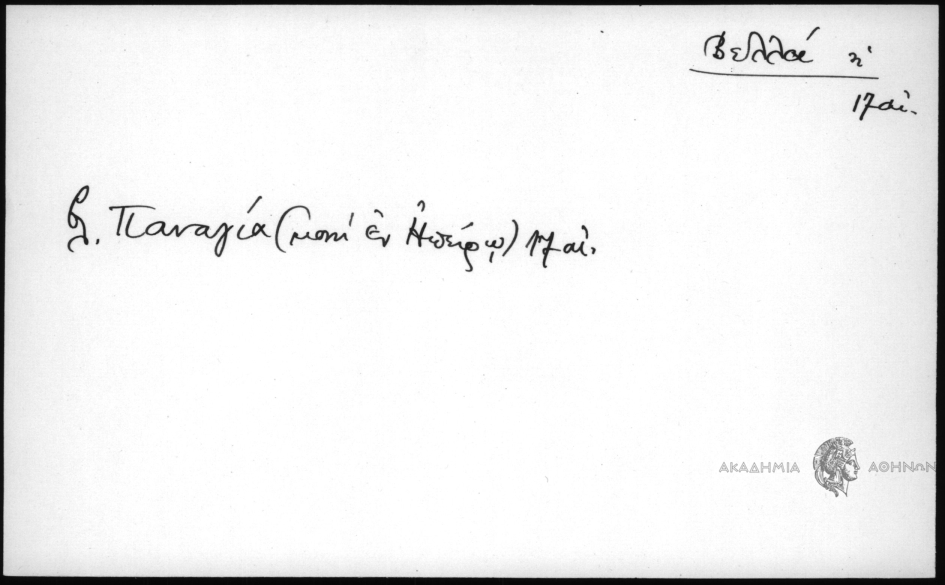 Βελλά ἡ
17 αἰ.
βλ. Παναγία (μονή ἐν Ἠπείρῳ) 17 αἰ.
ΑΚΑΔΗΜΙΑ ΑΘΗΝΩΝ